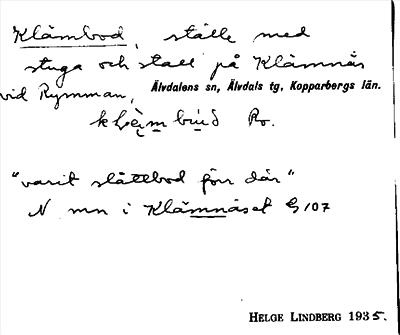 Klämbod, ställe med
stuga och stall på Klämnäs
vid Rymman, Älvdalens sn, Älvdals tg, Kopparbergs län.
"varit slåttbod förr där"
N mn i Klämnäset G 107
HELGE LINDBERG 1935.